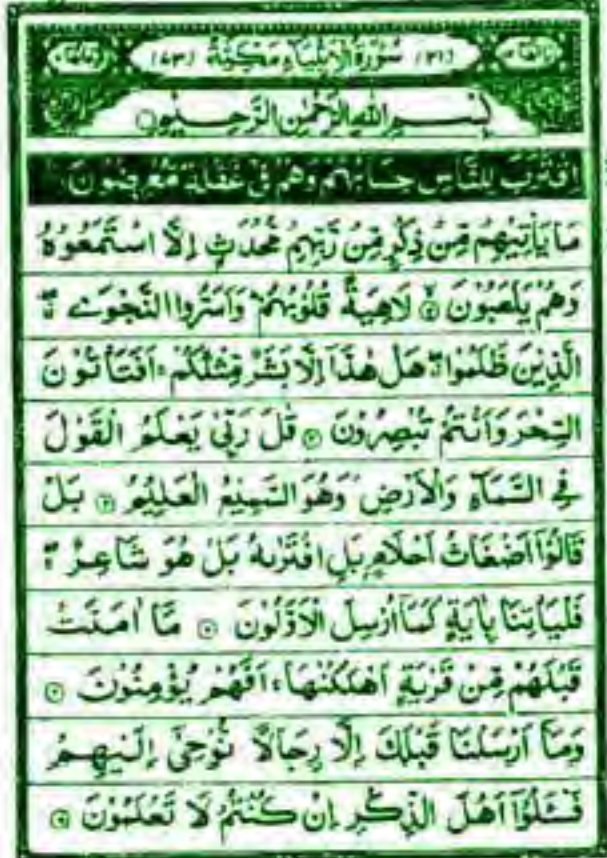 (٢١) سُوْرَةُ الْاَنْۢبِيَآءِ مَكِّيَّةٌ (٧٣)
بِسْمِ اللّٰهِ الرَّحْمٰنِ الرَّحِيْمِ
اِقْتَرَبَ لِلنَّاسِ حِسَابُهُمْ وَهُمْ فِيْ غَفْلَةٍ مُّعْرِضُوْنَ
مَا يَاْتِيْهِمْ مِّنْ ذِكْرٍ مِّنْ رَّبِّهِمْ مُّحْدَثٍ اِلَّا اسْتَمَعُوْهُ
وَهُمْ يَلْعَبُوْنَ ۝٢ لَاهِيَةً قُلُوْبُهُمْ وَاَسَرُّوا النَّجْوَى
الَّذِيْنَ ظَلَمُوْا هَلْ هٰذَآ اِلَّا بَشَرٌ مِّثْلُكُمْ اَفَتَاْتُوْنَ
السِّحْرَ وَاَنْتُمْ تُبْصِرُوْنَ ۝٣ قٰلَ رَبِّيْ يَعْلَمُ الْقَوْلَ
فِي السَّمَآءِ وَالْاَرْضِ وَهُوَ السَّمِيْعُ الْعَلِيْمُ ۝٤ بَلْ
قَالُوْٓا اَضْغَاثُ اَحْلَامٍ بَلِ افْتَرٰىهُ بَلْ هُوَ شَاعِرٌ
فَلْيَاْتِنَا بِاٰيَةٍ كَمَآ اُرْسِلَ الْاَوَّلُوْنَ ۝٥ مَآ اٰمَنَتْ
قَبْلَهُمْ مِّنْ قَرْيَةٍ اَهْلَكْنٰهَا اَفَهُمْ يُؤْمِنُوْنَ ۝٦
وَمَآ اَرْسَلْنَا قَبْلَكَ اِلَّا رِجَالًا نُّوْحِيْٓ اِلَيْهِمْ
فَسْـَٔلُوْٓا اَهْلَ الذِّكْرِ اِنْ كُنْتُمْ لَا تَعْلَمُوْنَ ۝٧